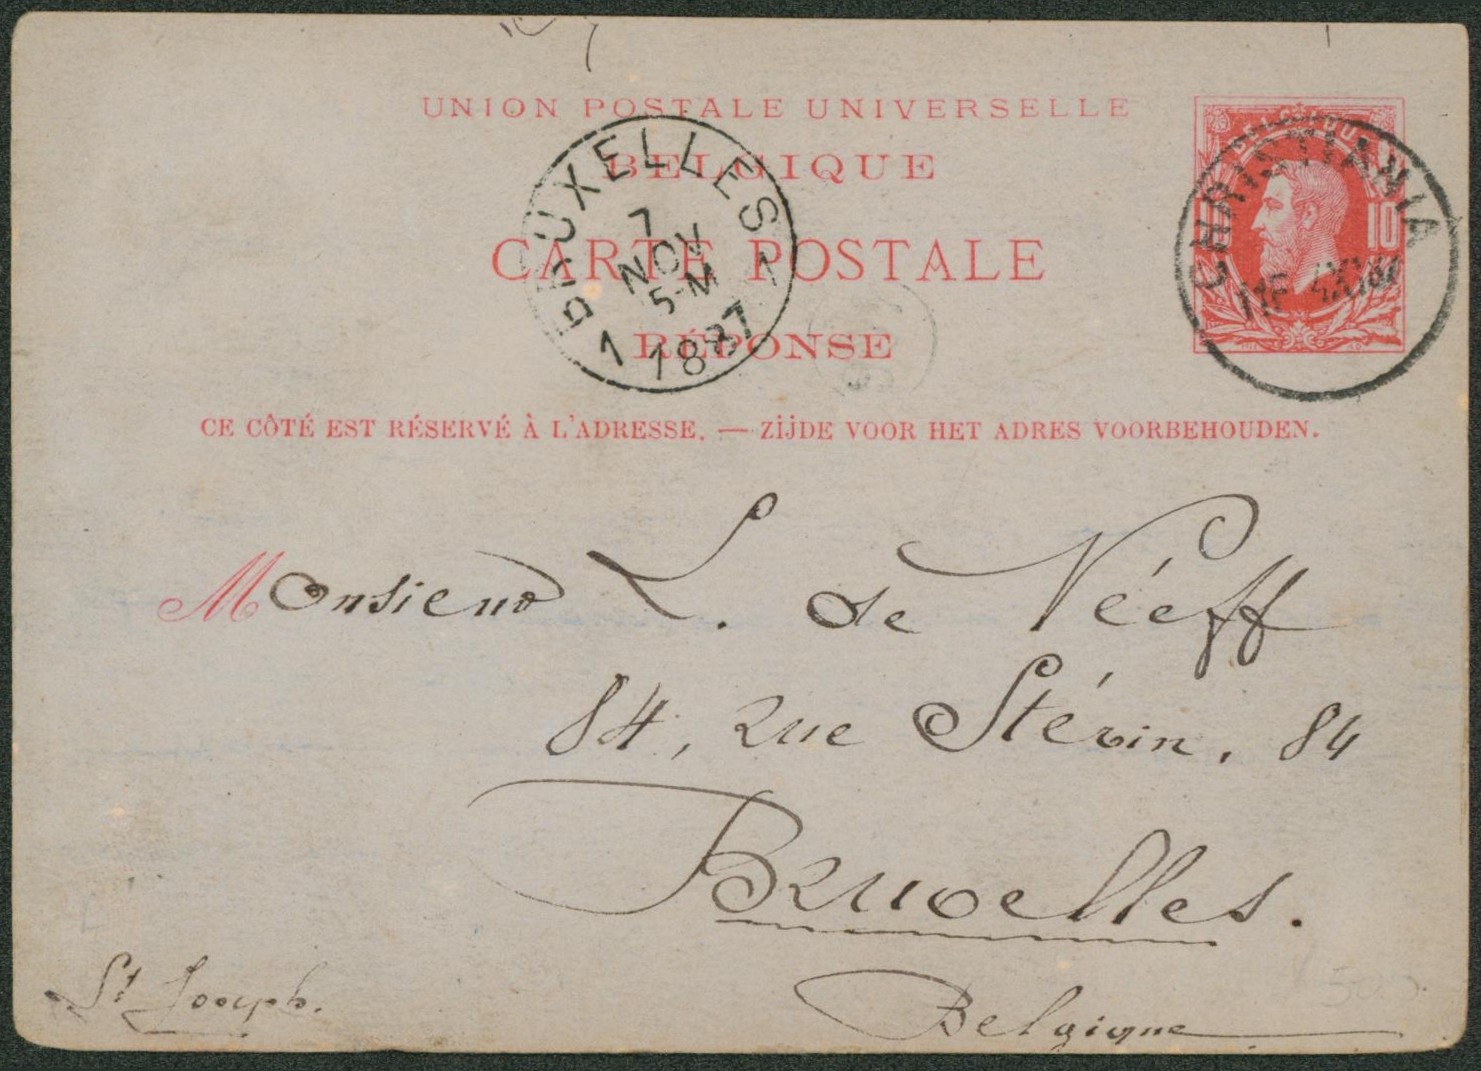 UNION POSTALE UNIVERSELLE
BELGIQUE
CARTE POSTALE
RÉPONSE
BRUXELLES 1
7
NOV
5-M
1887
1
CHRISTIANIA
10
CE CÔTÉ EST RÉSERVÉ À L'ADRESSE. — ZIJDE VOOR HET ADRES VOORBEHOUDEN.
Monsieur L. de Véeff
84, Rue Stévin, 84
Bruxelles.
Belgique
St Joseph.
500